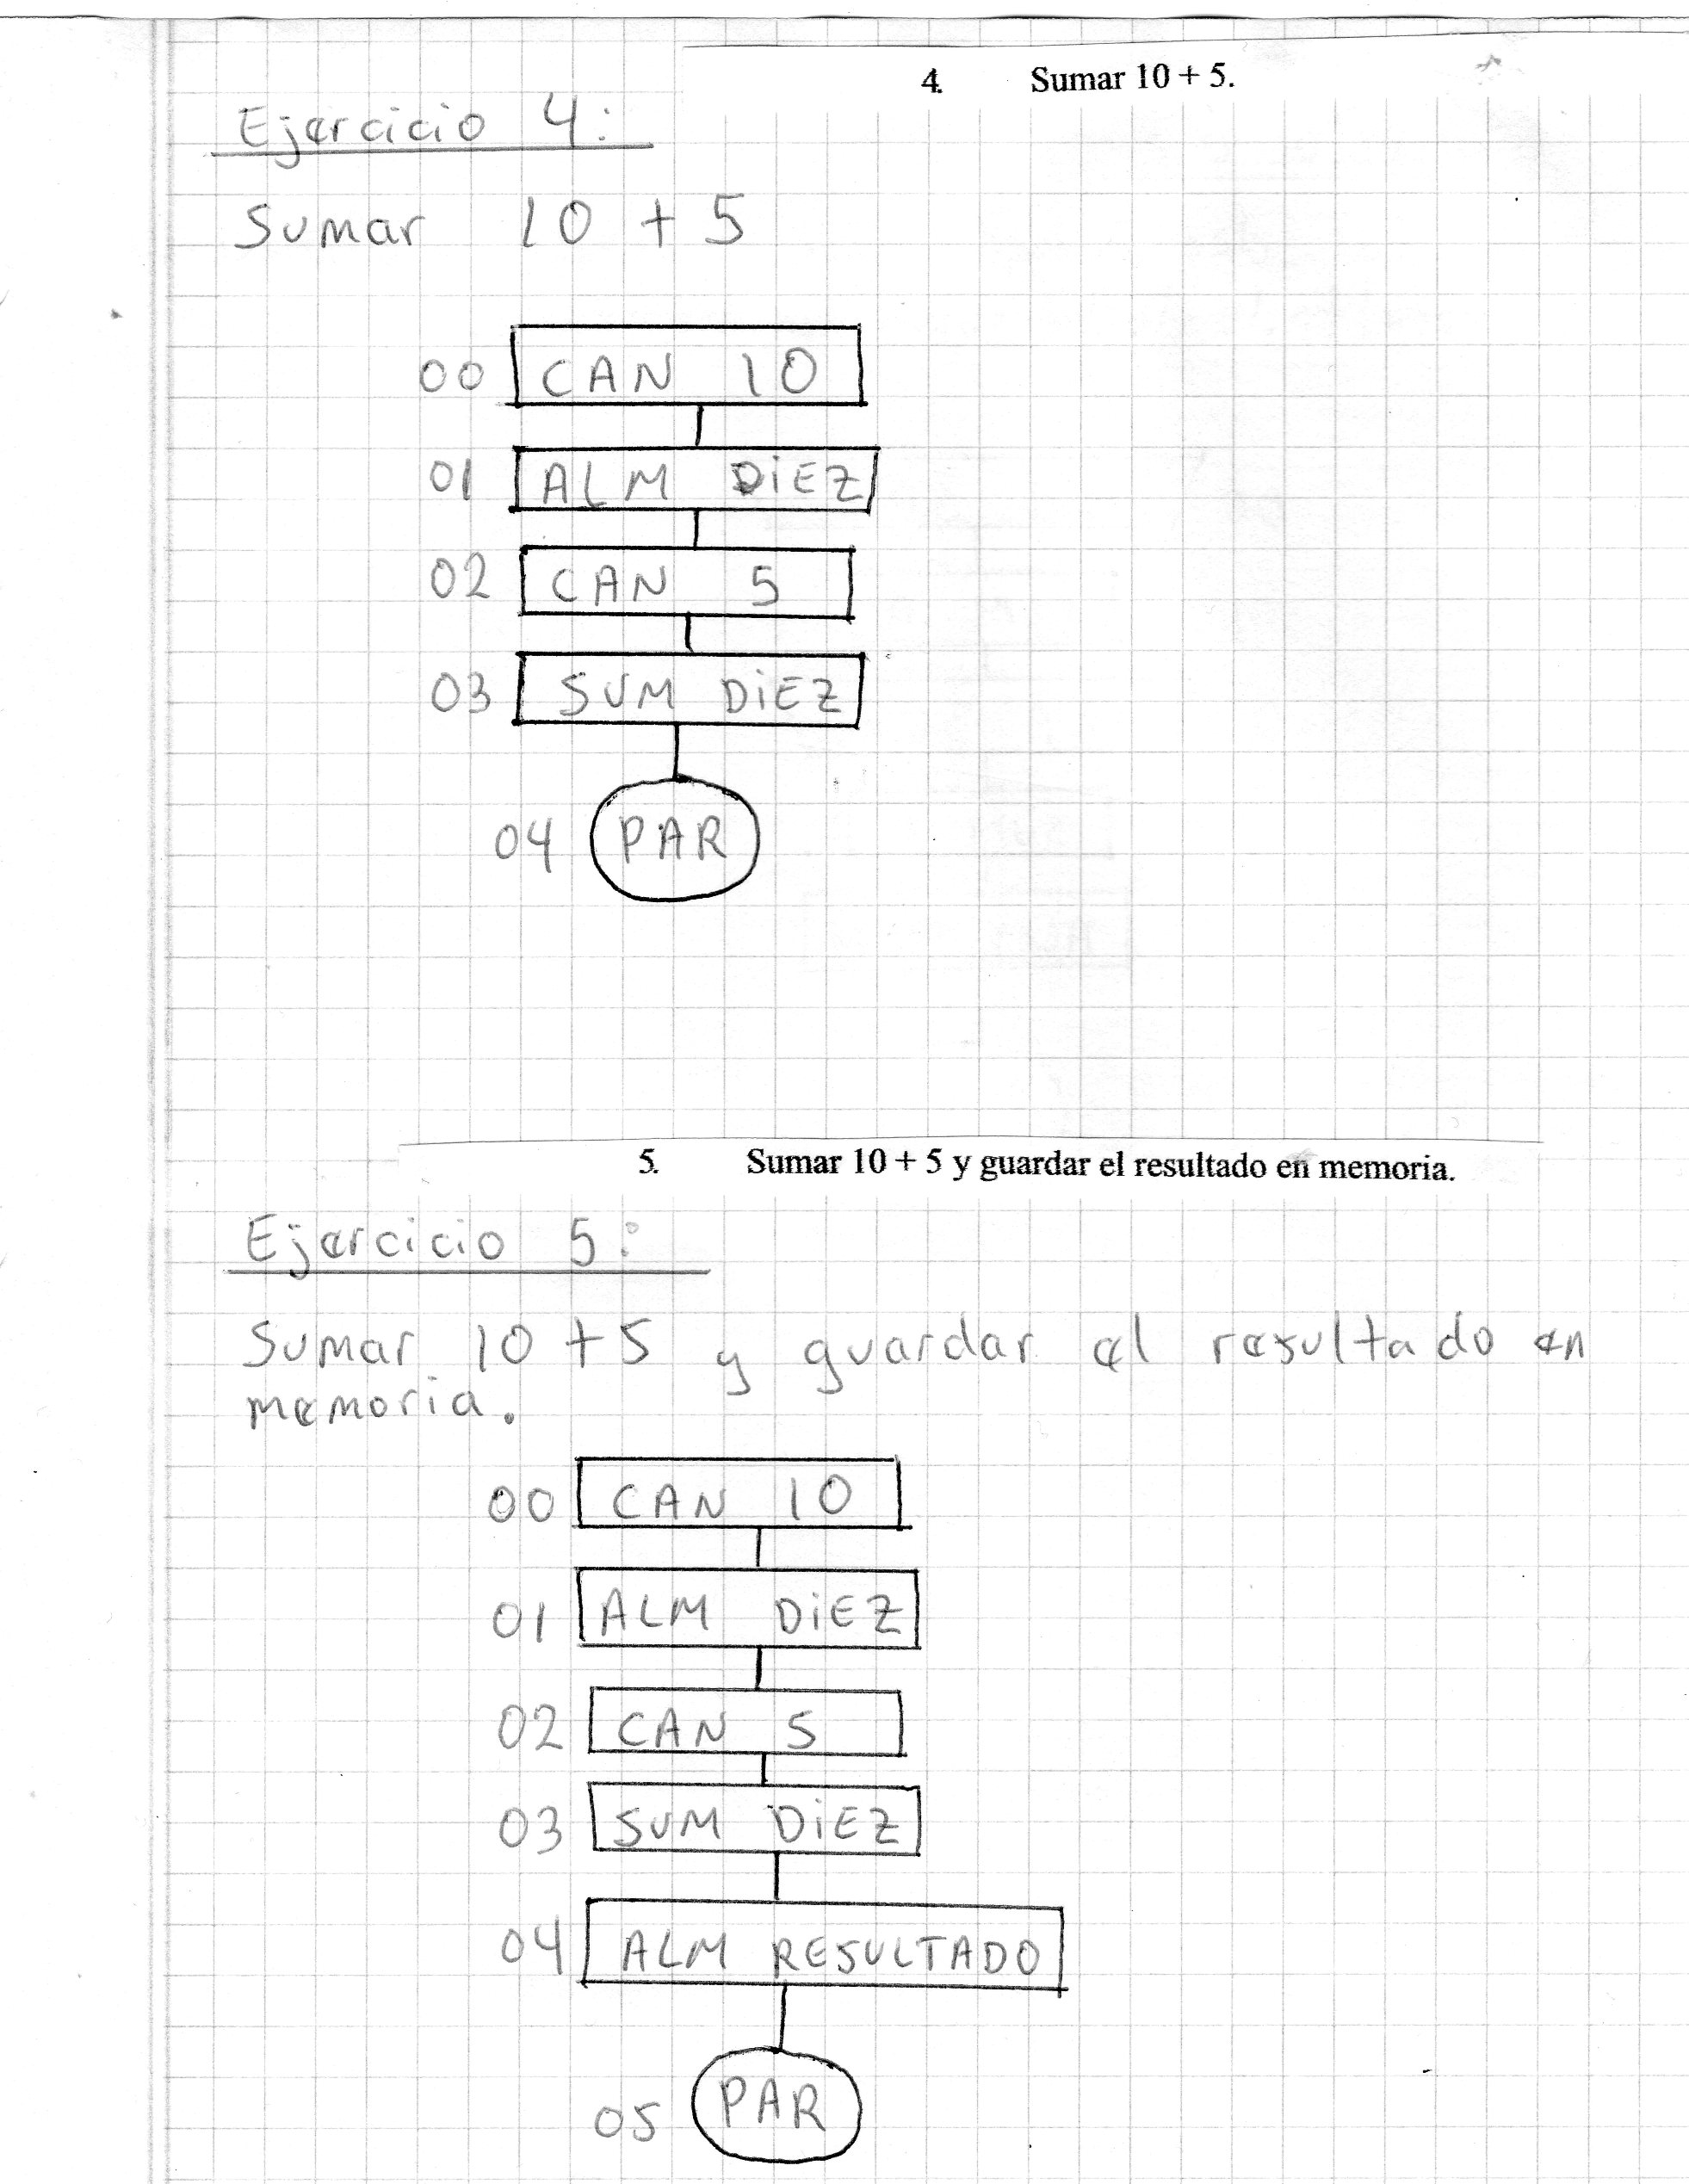 4. Sumar 10 + 5.
Ejercicio 4:
Sumar 10 + 5
00 CAN 10
01 ALM DiEZ
02 CAN 5
03 SUM DiEZ
04 PAR
5. Sumar 10 + 5 y guardar el resultado en memoria.
Ejercicio 5:
Sumar 10 + 5 y guardar el resultado en
memoria.
00 CAN 10
01 ALM DiEZ
02 CAN 5
03 SUM DiEZ
04 ALM RESULTADO
05 PAR